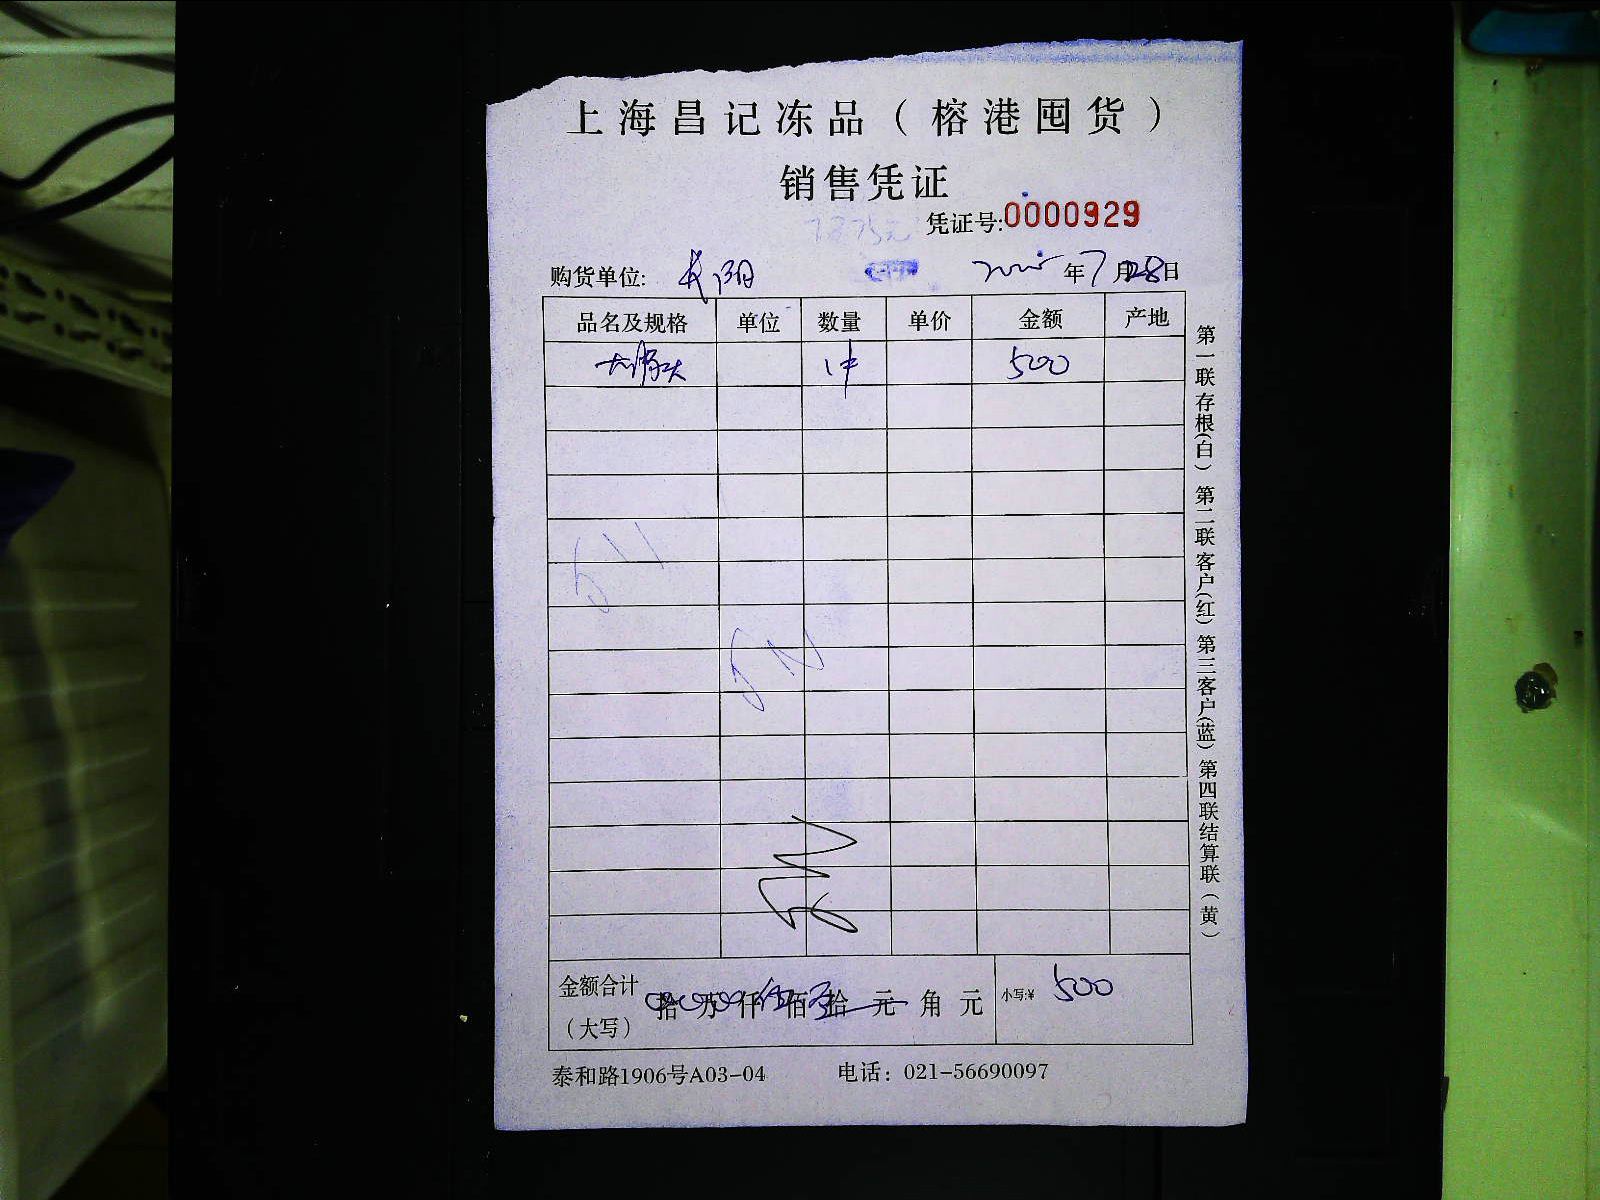 上海昌记冻品（榕港囤货）
销售凭证
凭证号:0000929
购货单位: 长阳 2025年7月28日
品名及规格 单位 数量 单价 金额 产地
1件 500
金额合计（大写） 拾 万 仟 伍 佰 拾 元 角 元 小写:¥ 500
泰和路1906号A03-04 电话：021-56690097
第一联存根（白） 第二联客户（红） 第三客户（蓝） 第四联结算联（黄）